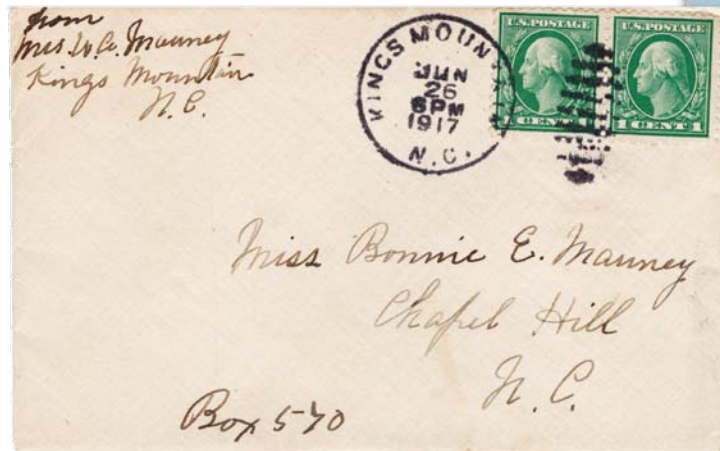 from
Mrs W. A. Mauney
Kings Mountain
N.C.
KINGS MOUN
JUN
26
6 PM
1917
N.C.
U.S. POSTAGE
1 CENT 1
U.S. POSTAGE
1 CENT 1
Miss Bonnie E. Mauney
Chapel Hill
N. C.
Box 570